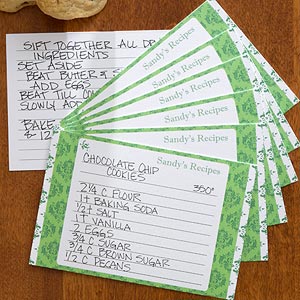 SIFT TOGETHER ALL
INGREDIENTS
SET ASIDE
BEAT BUTTER &
ADD EGGS
BEAT TILL
SLOWLY ADD
BAKE
Sandy's Recipes
Sandy's Recipes
Sandy's Recipes
Sandy's Recipes
Sandy's Recipes
Sandy's Recipes
CHOCOLATE CHIP
COOKIES
350°
2 1/4 C FLOUR
1 t BAKING SODA
1/2 t SALT
1 t VANILLA
2 EGGS
3/4 C SUGAR
3/4 C BROWN SUGAR
1/2 C PECANS